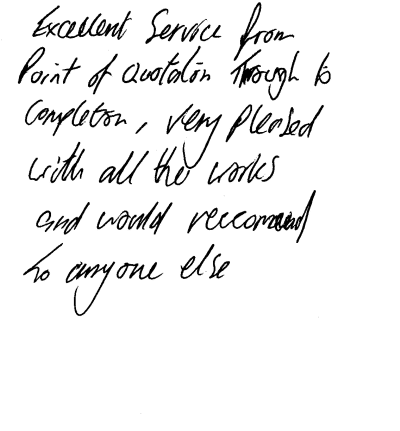 Excellent Service from
Point of Quotation Through to
Completion, very pleased
with all the works
and would reccomend
to anyone else